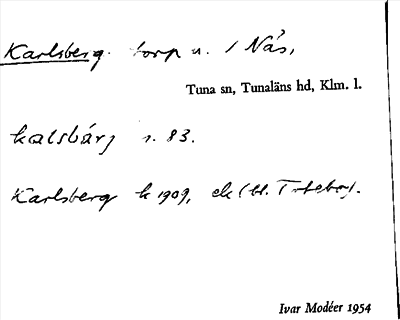 Karlsberg. torp u. 1 Nås,
Tuna sn, Tunaläns hd, Klm. l.
kalsbárj s. 83.
Karlsberg k 1909, ek (bl.
Ivar Modéer 1954